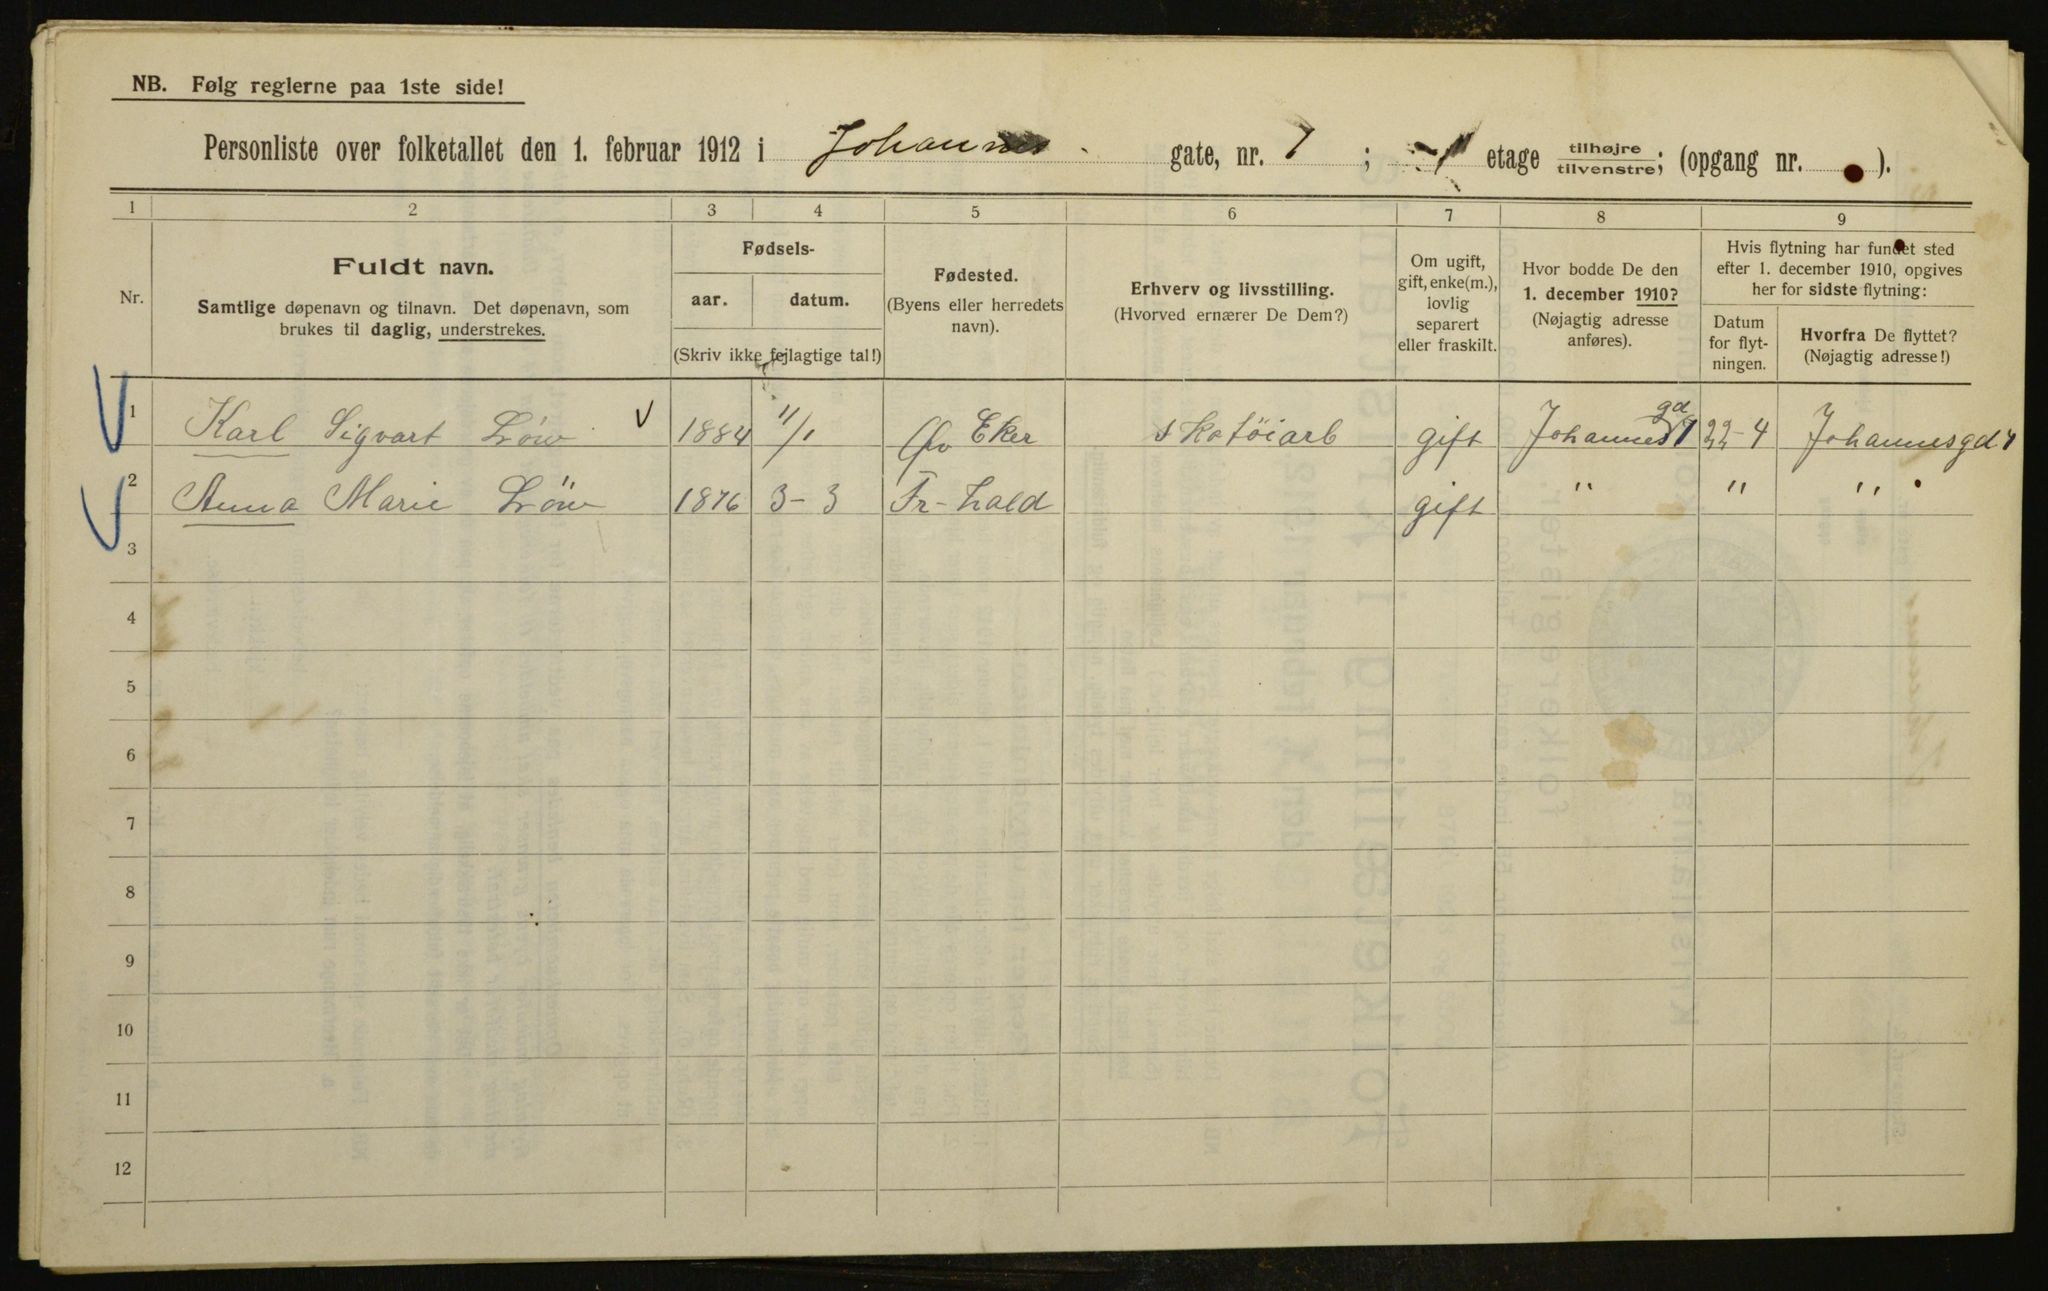 NB. Følg reglerne paa 1ste side!
Personliste over folketallet den 1. februar 1912 i Johannes gate, nr. 1 ; etage tilhøjre tilvenstre; (opgang nr. ).
1 2 3 4 5 6 7 8 9
Nr.
Fuldt navn.
Samtlige døpenavn og tilnavn. Det døpenavn, som
brukes til daglig, understrekes.
Fødsels-
aar. datum.
(Skriv ikke fejlagtige tal!)
Fødested.
(Byens eller herredets
navn).
Erhverv og livsstilling.
(Hvorved ernærer De Dem?)
Om ugift,
gift, enke(m.),
lovlig
separert
eller fraskilt.
Hvor bodde De den
1. december 1910?
(Nøjagtig adresse
anføres).
Hvis flytning har fundet sted
efter 1. december 1910, opgives
her for sidste flytning:
Datum
for flyt-
ningen.
Hvorfra De flyttet?
(Nøjagtig adresse!)
1 Karl Sigvart Löw 1884 11/1 Øv Eker skotöiarb gift Johannesgd 1 22-4 Johannesgd 1
2 Anna Marie Löw 1876 3-3 Fr-hald gift " " "
3
4
5
6
7
8
9
10
11
12